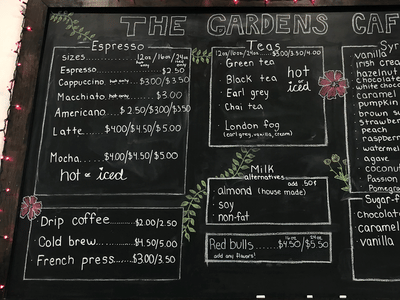 THE GARDENS CAF
Espresso
sizes..........12oz/16oz/24oz
Espresso............$2.50
Cappuccino hot only....$3.00/3.50
Macchiato hot only....$3.00
Americano....$2.50/$3.00/$3.50
Latte......$4.00/$4.50/$5.00
Mocha......$4.00/$4.50/$5.00
hot or iced
Drip coffee..........$2.00/2.50
Cold brew..........$4.50/5.00
French press.......$3.00/3.50
Teas
12oz/16oz/24oz......$3.00/3.50/4.00
Green tea
Black tea
Earl grey
Chai tea
hot or iced
London fog
(earl grey, vanilla, cream)
Milk
alternatives
add .50¢
almond (house made)
soy
non-fat
Red bulls.......$4.50/$5.50
16oz 24oz
add any flavors!
Syr
vanilla
irish crea
hazelnut
chocolate
white chocolat
caramel
pumpkin
brown su
strawber
peach
raspberr
watermel
agave
coconut
Passion
Pomegra
Sugar-f
chocolat
caramel
vanilla